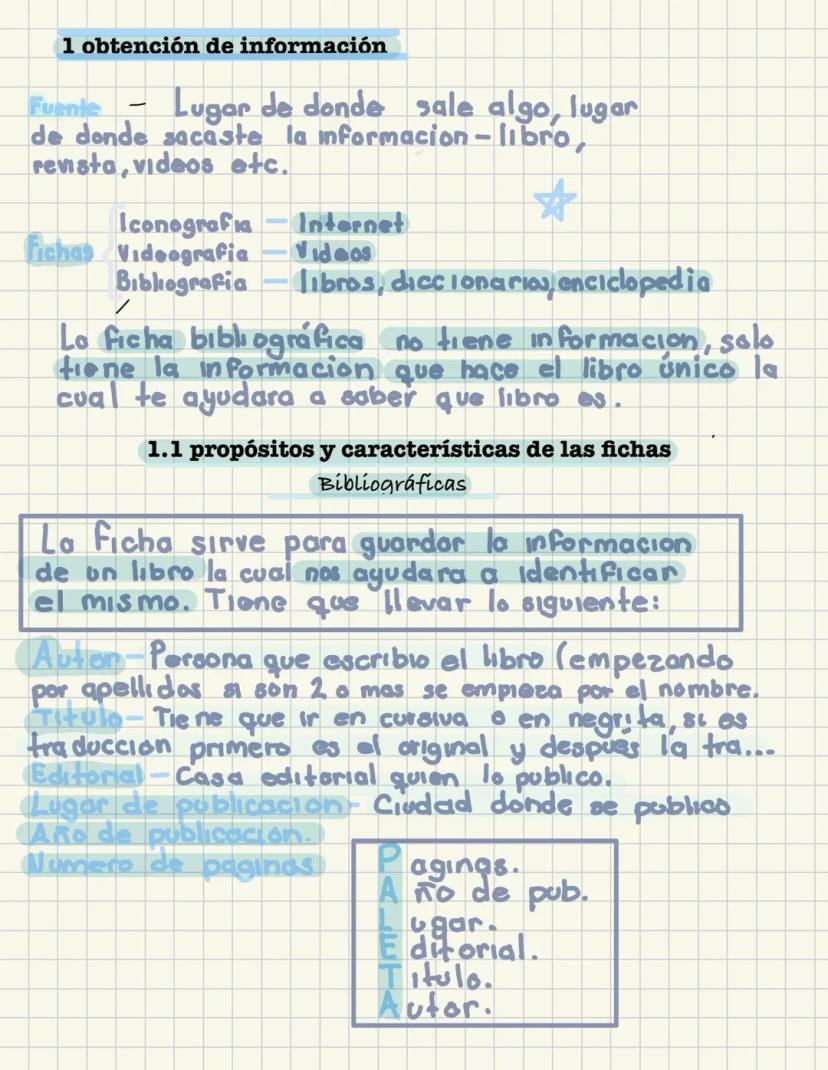 1 obtención de información
Fuente - Lugar de donde sale algo, lugar
de donde sacaste la informacion - libro,
revista, videos etc.
Fichas
Iconografia - Internet
Videografia - Videos
Bibliografia - libros, diccionarios, enciclopedia
La ficha bibliográfica no tiene informacion, solo
tiene la informacion que hace el libro único la
cual te ayudara a saber que libro es.
1.1 propósitos y características de las fichas
Bibliográficas
La Ficha sirve para guardar la informacion
de un libro la cual nos ayudara a identificar
el mismo. Tiene que llevar lo siguiente:
Autor - Persona que escribio el libro (empezando
por apellidos si son 2 o mas se empieza por el nombre.
Titulo - Tiene que ir en cursiva o en negrita, si es
traduccion primero es el original y después la tra...
Editorial - Casa editorial quien lo publico.
Lugar de publicacion - Ciudad donde se publico
Año de publicacion.
Numero de paginas
Paginas.
Año de pub.
Lugar.
Editorial.
Titulo.
Autor.